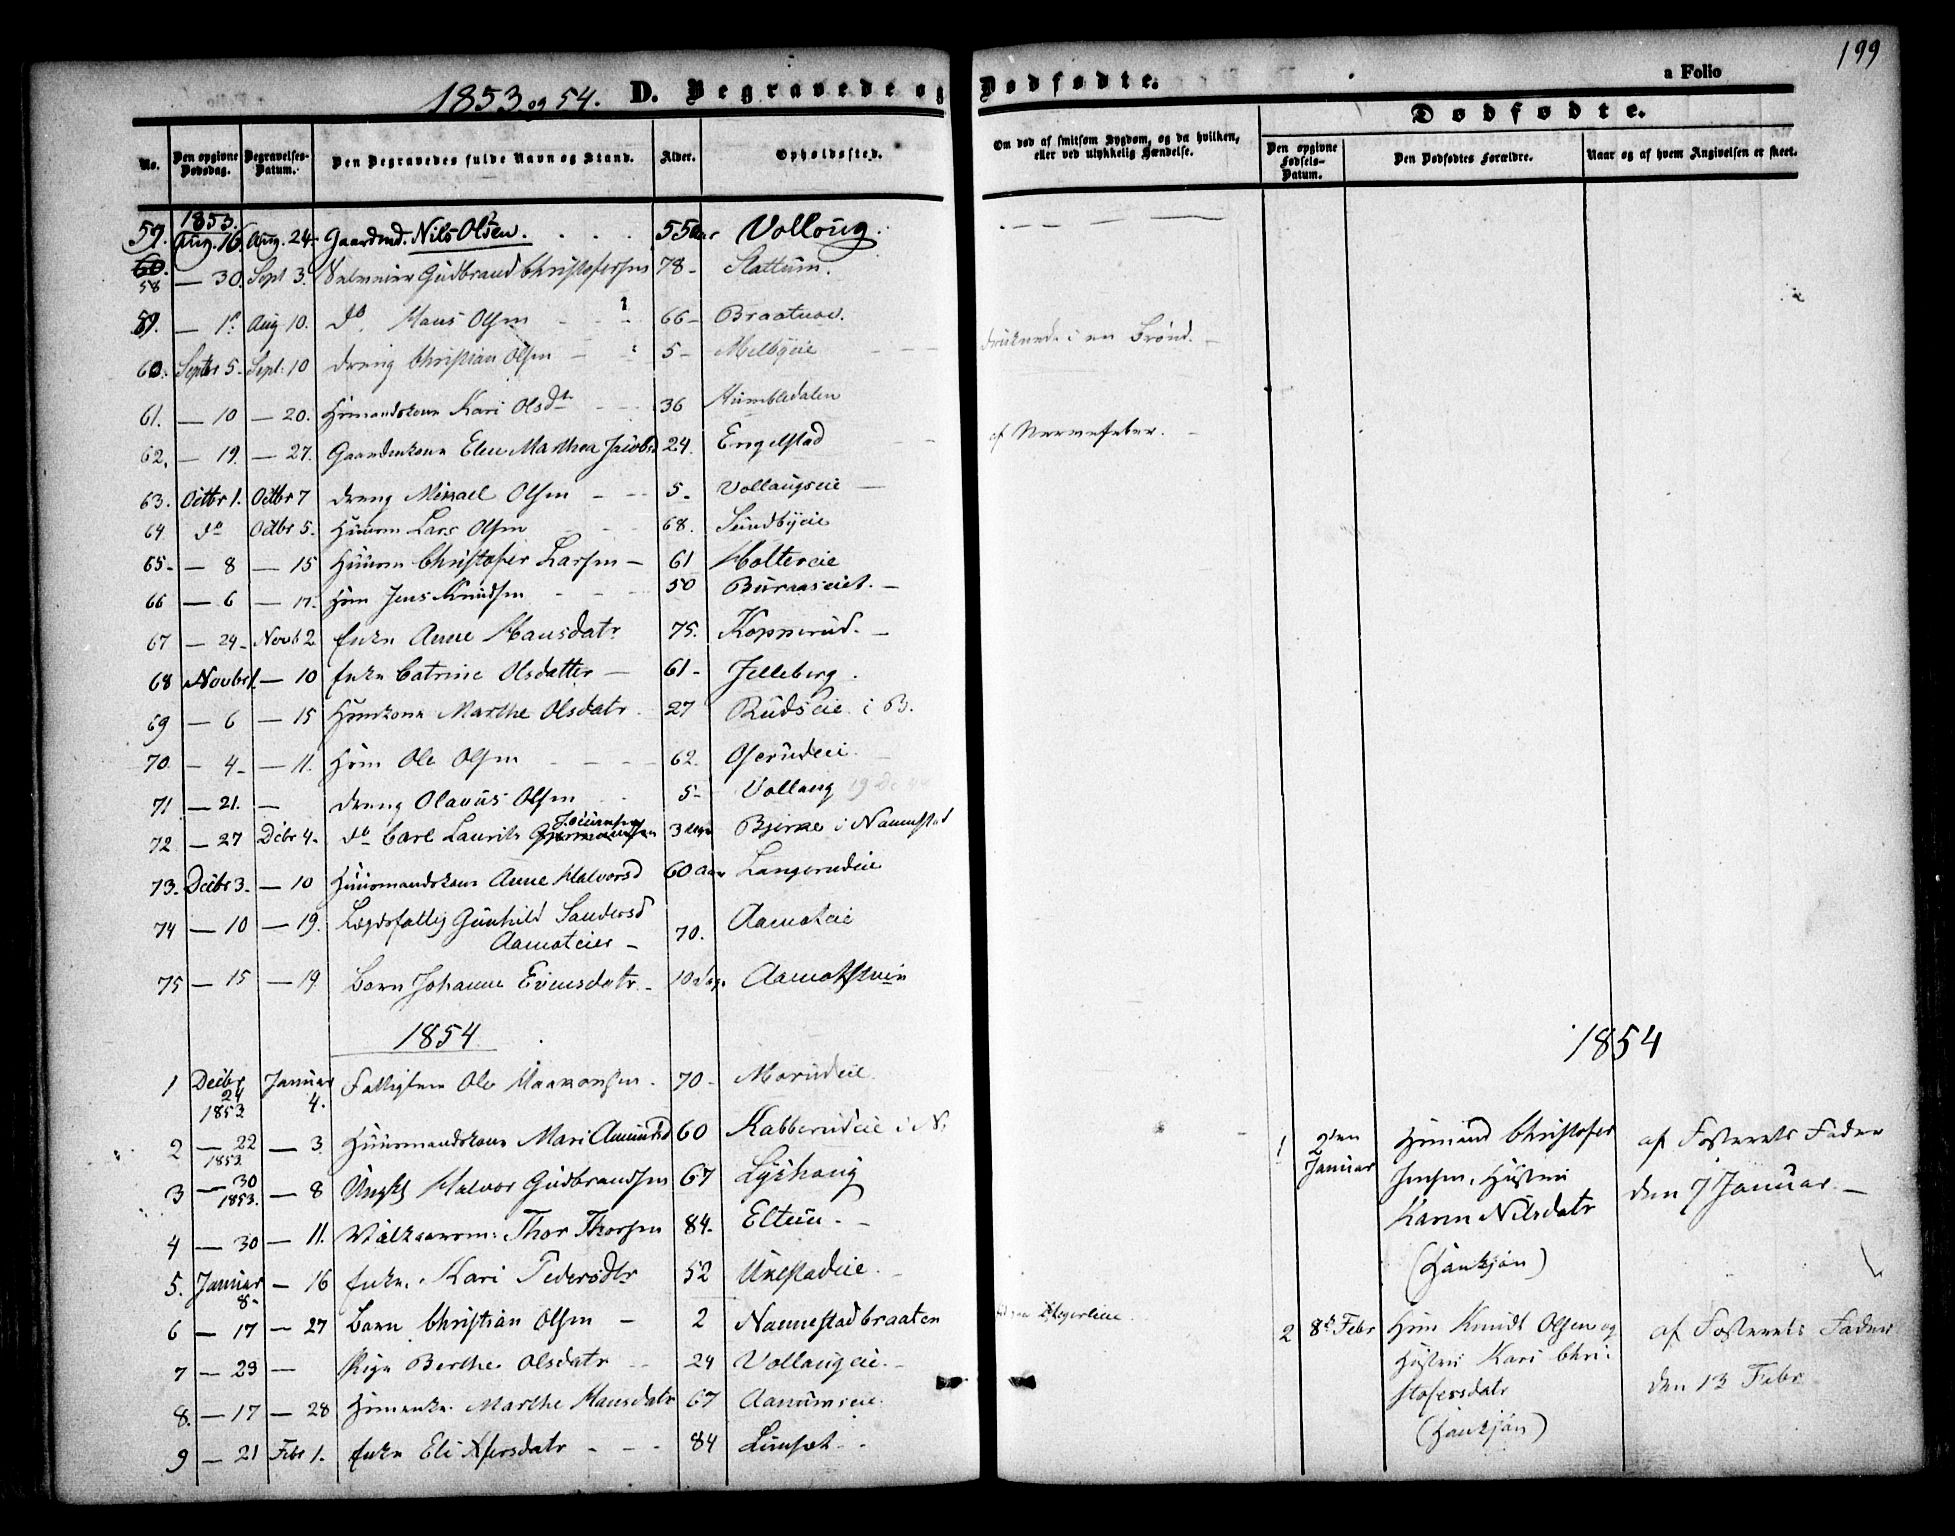 199
1853 og 54. D. Begravede og Dødfødte. a Folio
Dødfødte.
No. Den opgivne Dødsdag. Begravelses-Datum. Den Begravedes fulde Navn og Stand. Alder. Opholdssted. Om død af smitsom Sygdom, og da hvilken, eller ved ulykkelig Hændelse. Den opgivne Fødsels-Datum. Den Dødfødtes Forældre. Naar og af hvem Angivelsen er skeet.
1853.
57. Aug. 16. Aug. 24 Gaardmd. Nils Olsen. 55 Aar Vollaug.
58 — 30. Sept 3. Gudbrand Christofersen 78 - Slattum.
59. — 1. Aug 10. do. Hans Olsen 66 - Braatnæ.
60. Septbr 5. Sept. 10 dreng Christian Olsen 5 - Melbyeie druknede i en Brønd.
61. — 10 — 20. Hmandskone Kari Olsdtr 36 Humbledalen
62. — 19. — 27. Gaardmkone Elen Marthea Jacobsd 24. Engelstad af Nervefeber.
63. Octbr 1. Octbr 7 dreng Mikael Olsen 5. Vollaugseie
64 do Octbr 5. Huusm Lars Olsen 68. Sundbyeie
65 - — 8 — 15 Huusm Christofer Larsen 61 Holtereie
66 — 6 — 17. Hm Jens Knudsen 50 Buraaseiet.
67 — 24 - Novb 2 Enke Anne Hansdatr 75. Kopperud.
68 Novbr 1. — 10 Enke Catrine Olsdatter 61 - Jelleberg.
69 — 6 — 15 Hmkone Marthe Olsdatr 27 Rudseie i B.
70. — 4 - — 11. Hm Ole Olsen 62. Oserudeie.
71 — 21. — dreng Olavus Olsen 5 - Vollaug
72 — 27 Decbr 4. do Carl Laurits 3 dage Bjerke i Nannestad
73. Decbr 3. — 10 Huusmandskone Anne Halvorsd 60 Aar Langerudeie
74 — 10 — 19. Lægdsfattig Gunhild Sandersd
Aamoteier 70. Aamoteie
75 — 15 — 19 Barn Johanne Evensdatr. 10 dage
1854
1854
1 Decbr 24 1853 Januar 4. Ole Haakonsen. 70 - Morudeie
2 — 22 1853 — 3 Huusmandskone Mari Amundsd 60 Kabberudeie i N.
3 — 30 1853. — 8 Ungkl Halvor Gudbrandsen 67 Lyshaug
4 — 30 — 11. Thor Thorsen 84. Eltun.
5. Januar 8 - — 16 Enke. Kari Pedersdtr 52 Ukestadeie.
6 — 17 — 27 Barn Christian Olsen 2 Nannestadbraaten
7 — 23 — Pige Berthe Olsdatr 24 Vollaugeie.
8. — 17 — 28 Hmenke. Marthe Hansdatr 67
9 — 21 Febr 1. Enke Eli 84
1 2den Januar Hmand Christofer
Jensen, Hustru
Karen Nilsdatr
(Hankjøn)
af Fosterets Fader
den 7 Januar.
2 8de Febr Hm Knudt Olsen og
Hustru Kari Chri-
stofersdatr
(Hankjøn)
af Fosterets Fader
den 13 Febr